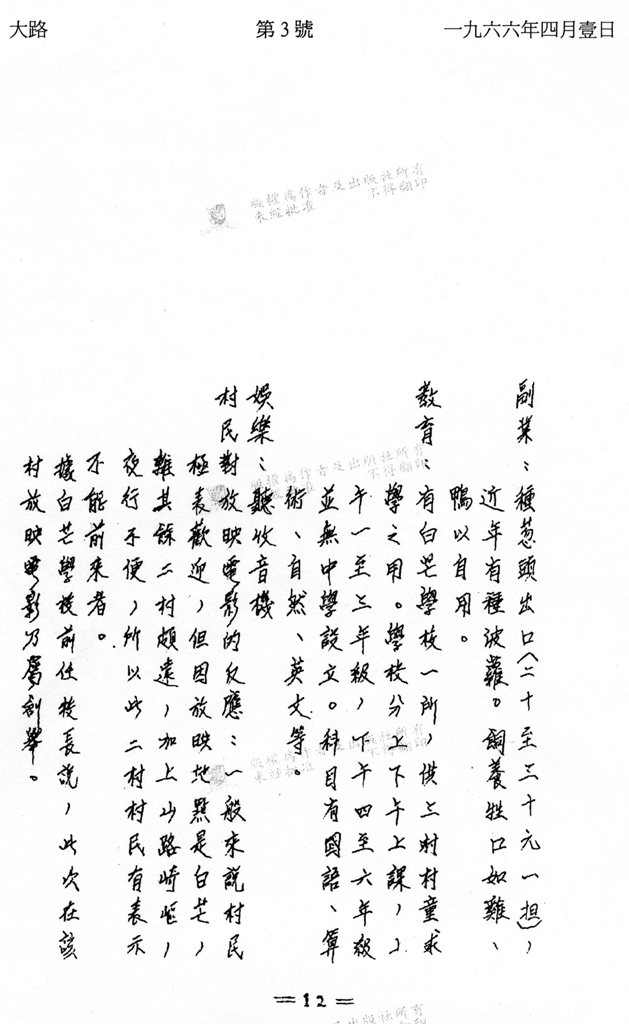 大路
第3號
一九六六年四月壹日
副業：種葱頭出口（二十至三十元一担），
近年有種波蘿。飼養牲口如雞、
鴨以自用。
教育：有白芒學校一所，供三村村童求
學之用。學校分上下午上課，上
午一至三年級，下午四至六年級
並無中學設立。科目有國語、算
術、自然、英文等。
娛樂：聽收音機
村民對放映電影的反應：一般來說村民
極表歡迎，但因放映地點是白芒，
離其餘二村頗遠，加上山路崎岖，
夜行不便，所以此二村村民有表示
不能前來者。
據白芒學校前任校長說，此次在該
村放映電影乃屬創舉。
=12=
版權為作者及出版社所有
未經批准 不得翻印
版權為作者及出版社所有
未經批准 不得翻印
版權為作者及出版社所有
未經批准 不得翻印
出版社所有
不得翻印